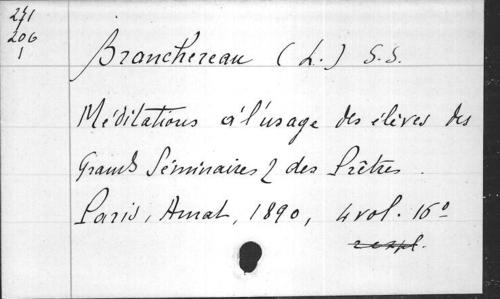 271
206
1
Branchereau (L.) S.S.
Méditations à l'usage des élèves des
Grands Séminaires & des Prêtres.
Paris, Amat, 1890, 4 vol. 16°